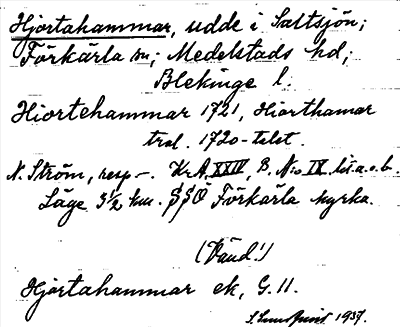 Hjortahammar, udde i Saltsjön;
Förkärla sn; Medelstads hd;
Blekinge l.
Hiortehammar 1721, Hiorthamar
trol. 1720-talet.
N. Ström, resp -. Kr.A. XXIV, B. N:o IX lit. a. o. b.
Läge 3½ km. SSÖ Förkärla kyrka.
(Vänd!)
Hjortahammar ek, G. 11.
1937.